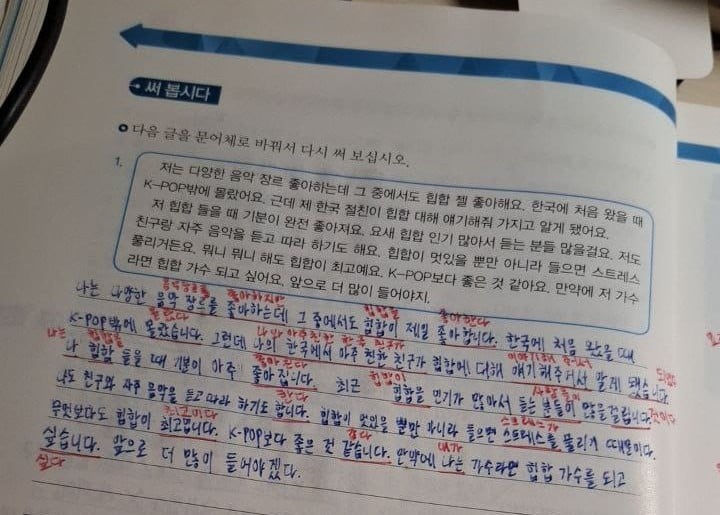 써 봅시다
다음 글을 문어체로 바꿔서 다시 써 보십시오.
1.
저는 다양한 음악 장르 좋아하는데 그 중에서도 힙합 젤 좋아해요. 한국에 처음 왔을 때
K-POP밖에 몰랐어요. 근데 제 한국 절친이 힙합 대해 얘기해줘 가지고 알게 됐어요.
저 힙합 들을 때 기분이 완전 좋아져요. 요새 힙합 인기 많아서 듣는 분들 많을걸요. 저도
친구랑 자주 음악을 듣고 따라 하기도 해요. 힙합이 멋있을 뿐만 아니라 들으면 스트레스
풀리거든요. 뭐니 뭐니 해도 힙합이 최고예요. K-POP보다 좋은 것 같아요. 만약에 저 가수
라면 힙합 가수 되고 싶어요. 앞으로 더 많이 들어야지.
음악장르를 좋아하지만 힙합을 좋아한다
나는 다양한 음악 장르를 좋아하는데 그 중에서도 힙합이 제일 좋아합니다. 한국에 처음 왔을 때
몰랐다 나와 아주 친한 한국 친구가 이야기해 줘서 되었다
K-POP밖에 몰랐습니다. 그런데 나의 한국에서 아주 친한 친구가 힙합에 대해 얘기해주어서 알게 됐습니다.
나는 힙합을 좋아진다 힙합이 사람들이 것이다
나 힙합 들을 때 기분이 아주 좋아집니다. 최근 힙합을 인기가 많아서 듣는 분들이 많을걸입니다.
한다 스트레스가
나도 친구와 자주 음악을 듣고 따라 하기도 합니다. 힙합이 멋있을 뿐만 아니라 들으면 스트레스를 풀리기 때문이다.
최고이다 같다 내가
무엇보다도 힙합이 최고입니다. K-POP보다 좋은 것 같습니다. 만약에 나는 가수라면 힙합 가수를 되고
싶다
싶습니다. 앞으로 더 많이 들어야겠다.